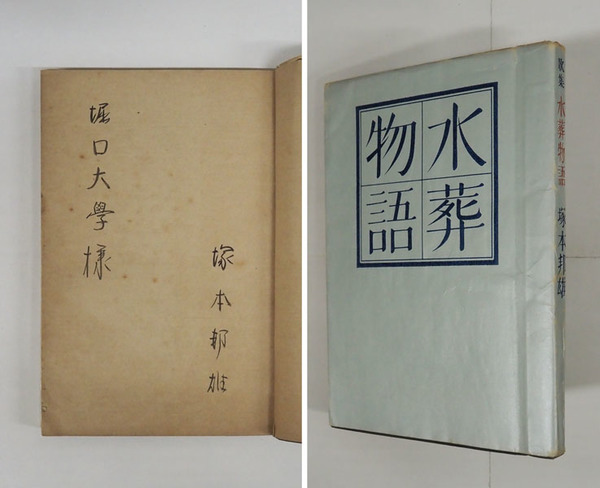 堀口大學様
塚本邦雄
水葬
物語
歌集 水葬物語 塚本邦雄